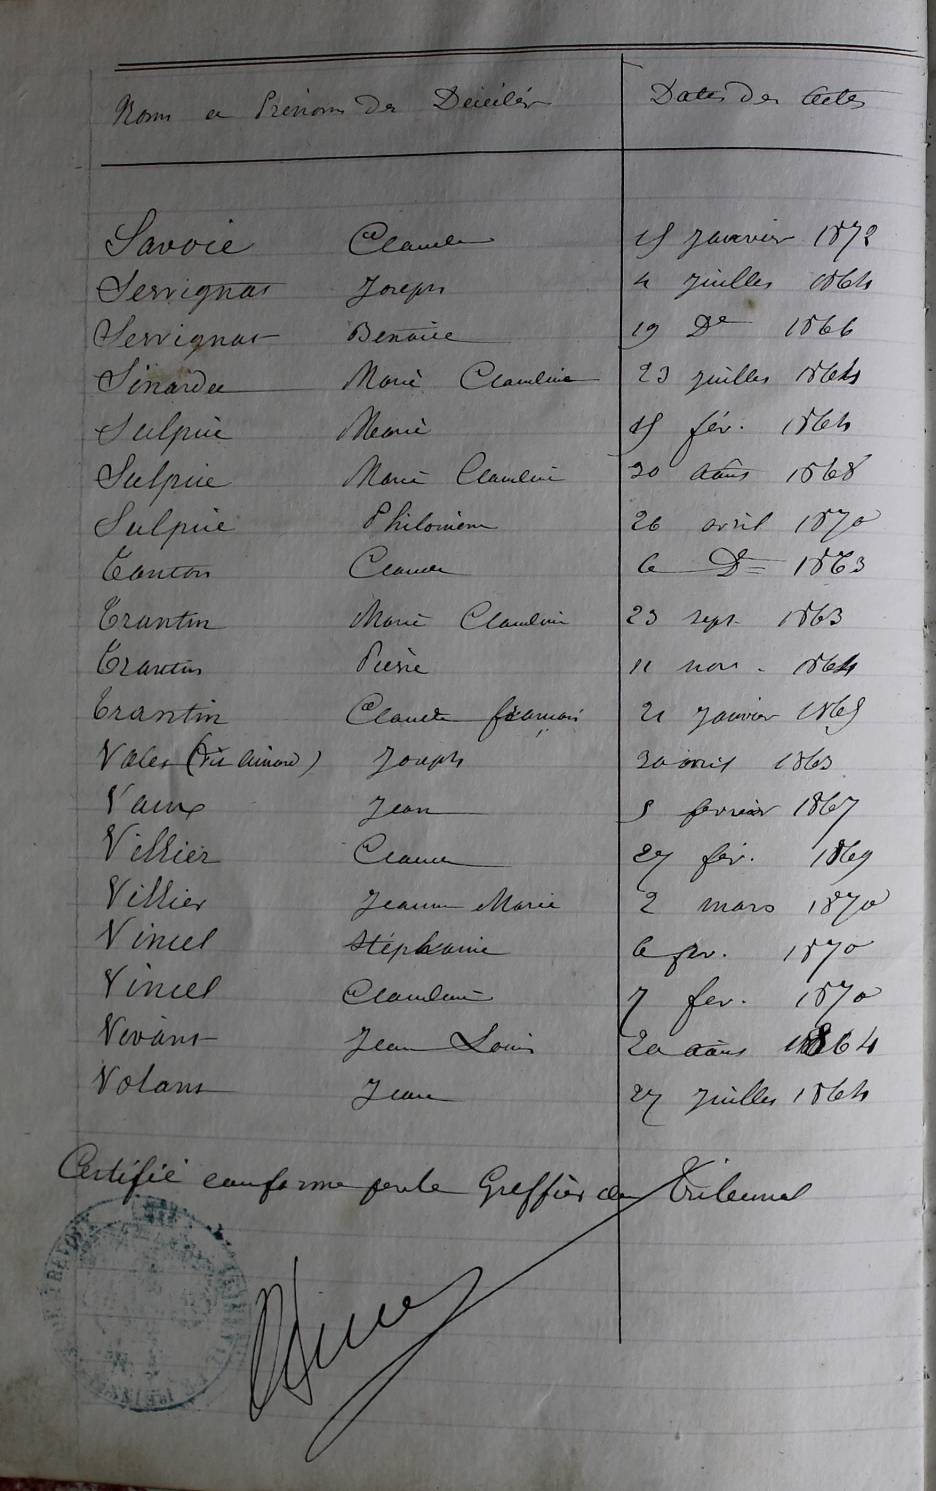 Noms et Prénoms des Décédés Dates des Actes
Savoie Claude 15 Janvier 1872
Servignat Joseph 4 juillet 1864
Servignat Benoite 19 De 1866
Sinardet Marie Claudine 23 juillet 1864
Sulpice Marie 15 fév. 1864
Sulpice Marie Claudine 30 août 1868
Sulpice Philomène 26 avril 1870
Tantin Claude 6 De 1863
Trantin Marie Claudine 23 sept. 1863
Trantin Pierre 11 nov. 1864
Trantin Claude françois 21 Janvier 1865
Valet (dit Aimard) Joseph 30 avril 1863
Vaux Jean 5 fevrier 1867
Villier Claude 27 fév. 1869
Villier Jeanne Marie 2 mars 1870
Vincel Stéphanie 6 fev. 1870
Vincel Claudine 7 fev. 1870
Vivant Jean Louis 20 août 1864
Volant Jean 27 Juillet 1864
Certifié conforme par le Greffier du Tribunal